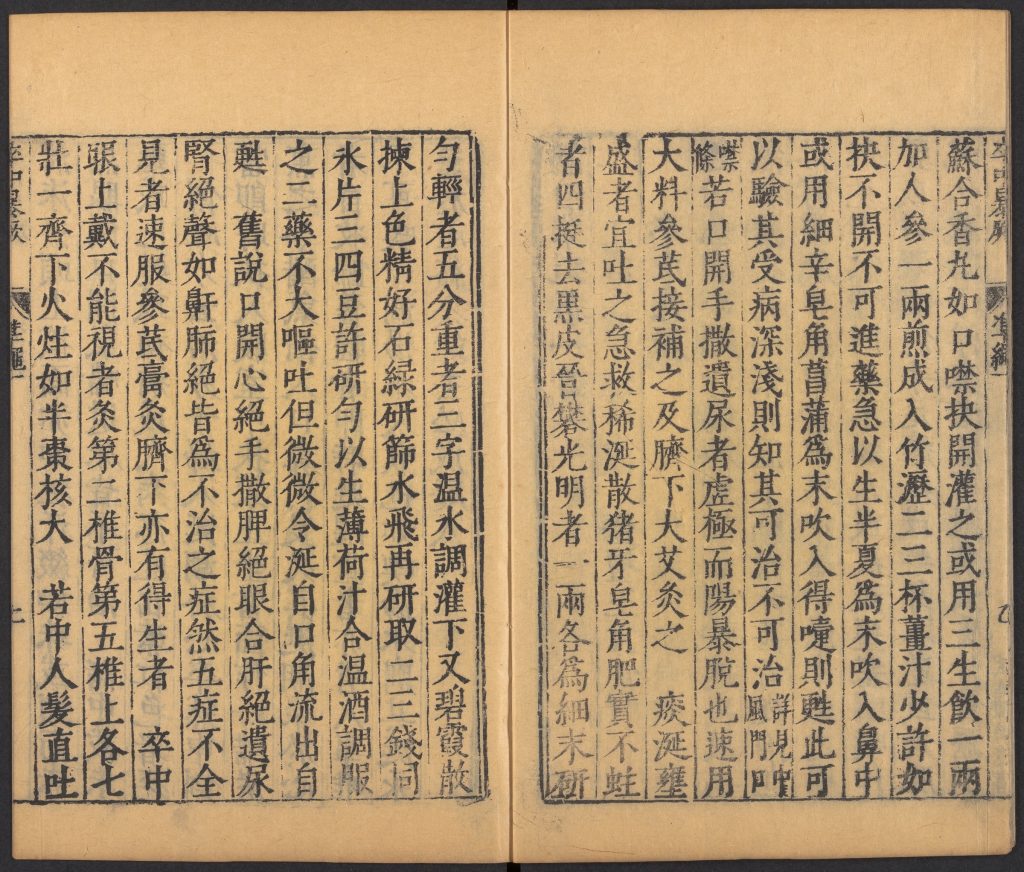 蘇合香丸如口噤抉開灌之或用三生飲一兩
加人參一兩煎成入竹瀝二三杯薑汁少許如
抉不開不可進藥急以生半夏爲末吹入鼻中
或用細辛皂角菖蒲爲末吹入得嚏則甦此可
以驗其受病深淺則知其可治不可治詳見中風門口
噤條若口開手撒遺尿者虚極而陽暴脫也速用
大料參芪接補之及臍下大艾灸之　痰涎壅
盛者宜吐之急救稀涎散猪牙皂角肥實不蛀
者四挺去黒皮晉礬光明者一兩各爲細末研
勻輕者五分重者三字温水調灌下又碧霞散
揀上色精好石緑研篩水飛再研取二三錢同
氷片三四豆許研勻以生薄荷汁合温酒調服
之二藥不大嘔吐但微微令涎自口角流出自
甦　舊說口開心絕手撒脾絕眼合肝絕遺尿
腎絕聲如鼾肺絕皆爲不治之症然五症不全
見者速服參芪膏灸臍下亦有得生者　卒中
眼上戴不能視者灸第二椎骨第五椎上各七
壯一齊下火炷如半棗核大　若中人髮直吐